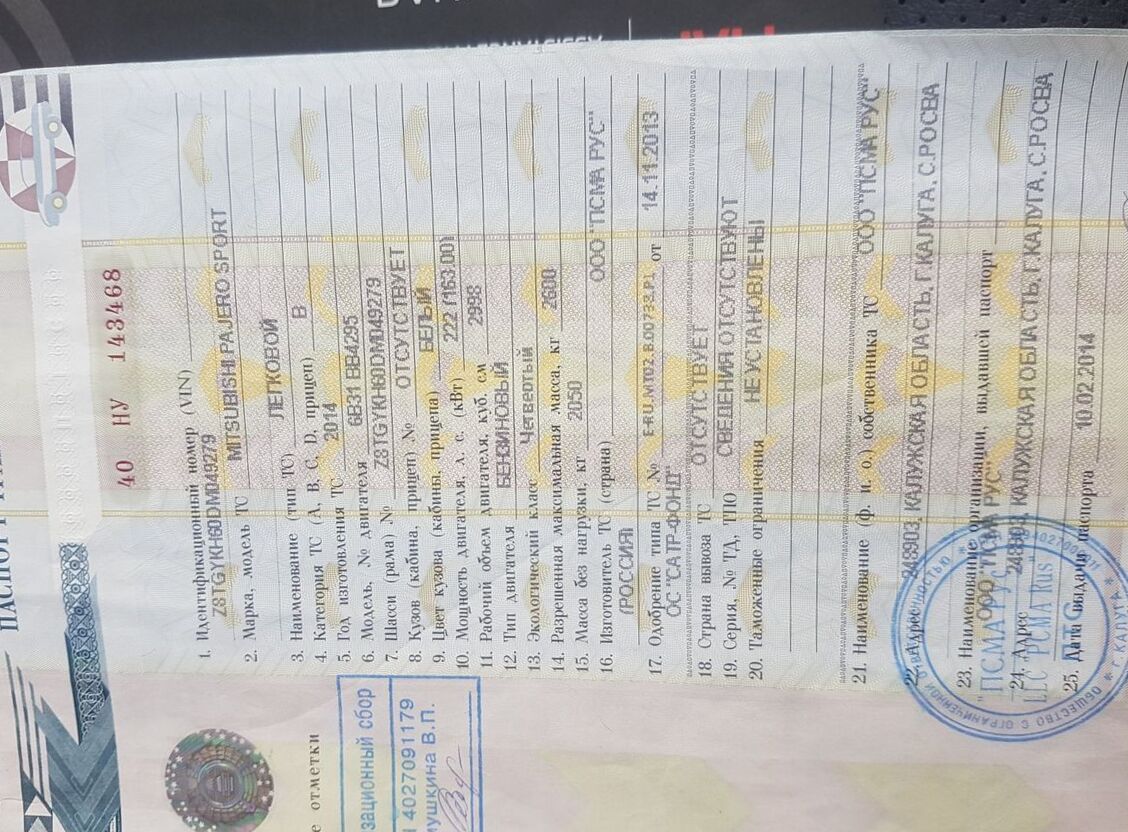 40 НУ 143468
1. Идентификационный номер (VIN)
Z8TGYKH60DM049279
2. Марка, модель ТС MITSUBISHI PAJERO SPORT
3. Наименование (тип ТС) ЛЕГКОВОЙ
4. Категория ТС (А, В, С, D, прицеп) В
5. Год изготовления ТС 2014
6. Модель, № двигателя 6B31 BB4295
7. Шасси (рама) № Z8TGYKH60DM049279
8. Кузов (кабина, прицеп) № ОТСУТСТВУЕТ
9. Цвет кузова (кабины, прицепа) БЕЛЫЙ
10. Мощность двигателя, л. с. (кВт) 222 (163.00)
11. Рабочий объем двигателя, куб. см 2998
12. Тип двигателя БЕНЗИНОВЫЙ
13. Экологический класс Четвертый
14. Разрешенная максимальная масса, кг 2600
15. Масса без нагрузки, кг 2050
16. Изготовитель ТС (страна) ООО "ПСМА РУС"
(РОССИЯ)
17. Одобрение типа ТС № E-RU.MT02.B.00733.P1 от 14.11.2013
ОС "САТР-ФОНД"
18. Страна вывоза ТС ОТСУТСТВУЕТ
19. Серия, № ТД, ТПО СВЕДЕНИЯ ОТСУТСТВУЮТ
20. Таможенные ограничения НЕ УСТАНОВЛЕНЫ
21. Наименование (ф. и. о.) собственника ТС ООО "ПСМА РУС"
22. Адрес 248903, КАЛУЖСКАЯ ОБЛАСТЬ, Г.КАЛУГА, С.РОСВА
23. Наименование организации, выдавшей паспорт
ООО "ПСМА РУС"
24. Адрес 248903, КАЛУЖСКАЯ ОБЛАСТЬ, Г.КАЛУГА, С.РОСВА
25. Дата выдачи паспорта 10.02.2014
"ПСМА РУС"
LLC "PCMA Rus"
ОБЩЕСТВО С ОГРАНИЧЕННОЙ ОТВЕТСТВЕННОСТЬЮ
г. КАЛУГА
отметки
сбор
4027091179
В.П.